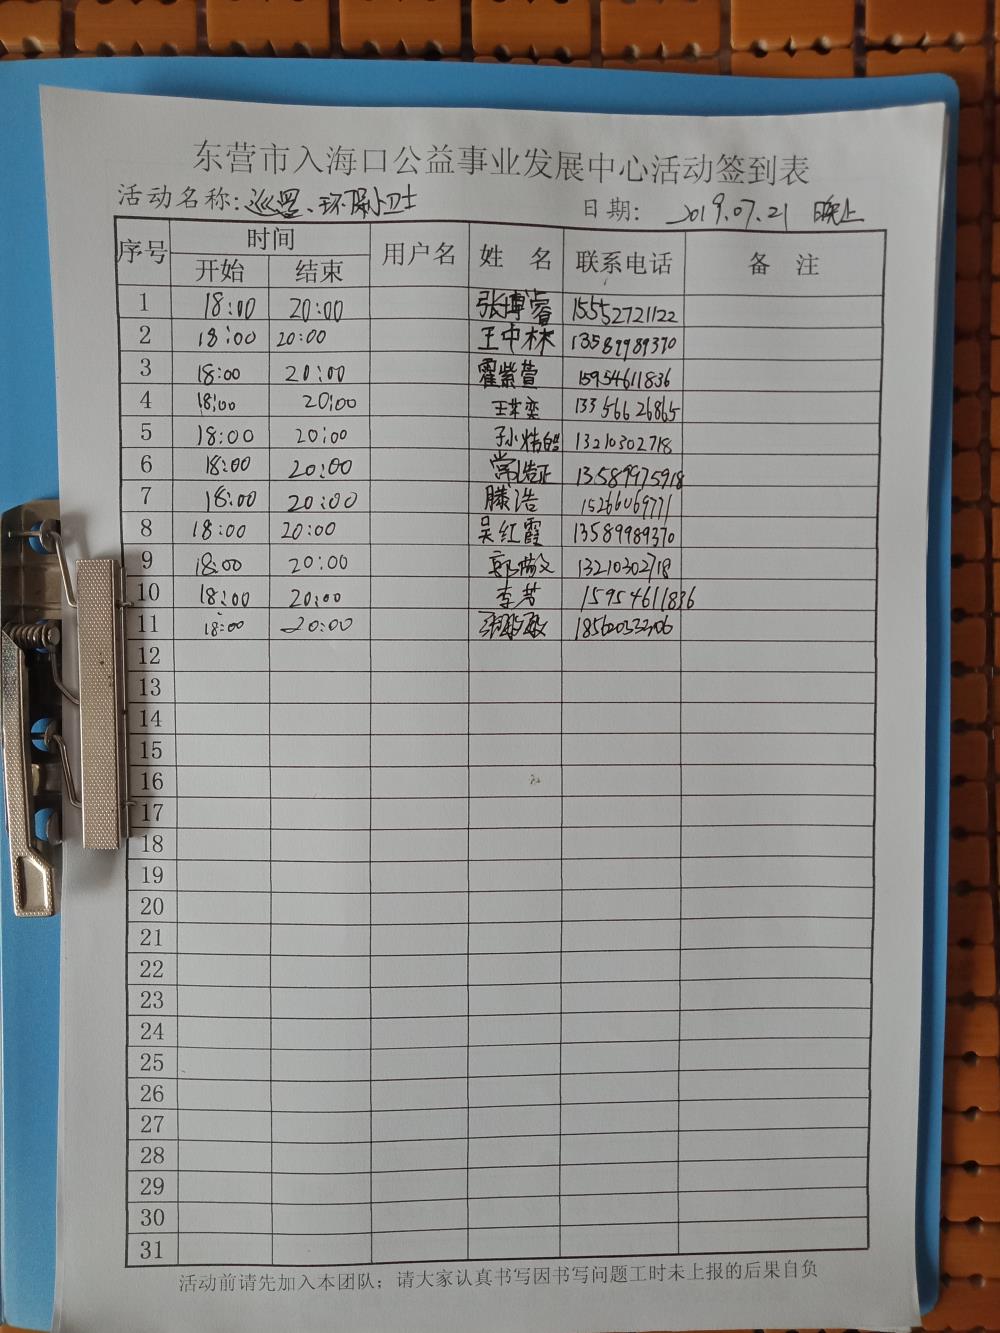 东营市入海口公益事业发展中心活动签到表
活动名称: 巡逻、环保小卫士 日期: 2019.07.21 晚上
序号 时间 用户名 姓 名 联系电话 备 注
开始 结束
1 18:00 20:00 张博睿 15552721122
2 18:00 20:00 王中林 13589989370
3 18:00 20:00 霍紫萱 15954611836
4 18:00 20:00 13356626865
5 18:00 20:00 13210302718
6 18:00 20:00 常皓正 13589975918
7 18:00 20:00 滕浩 15266069771
8 18:00 20:00 吴红霞 13589989370
9 18:00 20:00 13210302718
10 18:00 20:00 李芳 15954611836
11 18:00 20:00
12
13
14
15
16
17
18
19
20
21
22
23
24
25
26
27
28
29
30
31
活动前请先加入本团队；请大家认真书写因书写问题工时未上报的后果自负